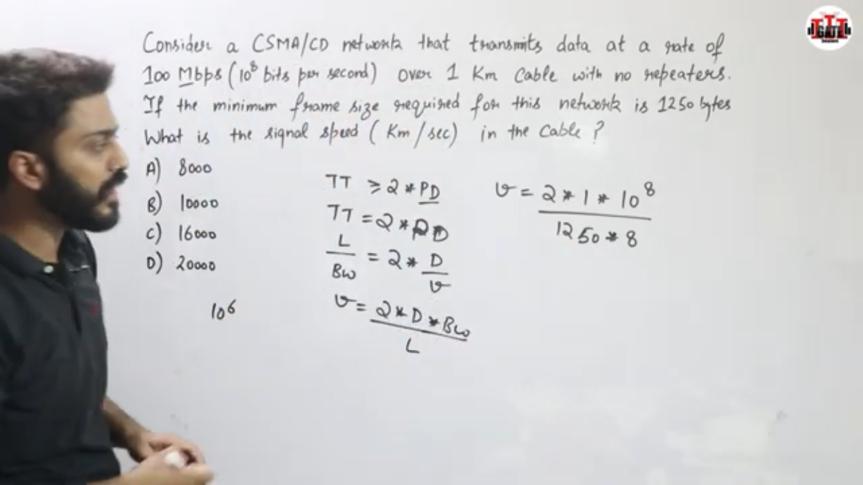 Consider a CSMA/CD network that transmits data at a rate of
100 Mbps (10⁸ bits per second) over 1 Km Cable with no repeaters.
If the minimum frame size required for this network is 1250 bytes
What is the signal speed (Km/sec) in the Cable ?
A) 8000
B) 10000
C) 16000
D) 20000
10⁶
TT ≥ 2 * PD
TT = 2 * PD
L/BW = 2 * D/v
v = 2 * D * BW / L
v = 2 * 1 * 10⁸ / 1250 * 8
GATE